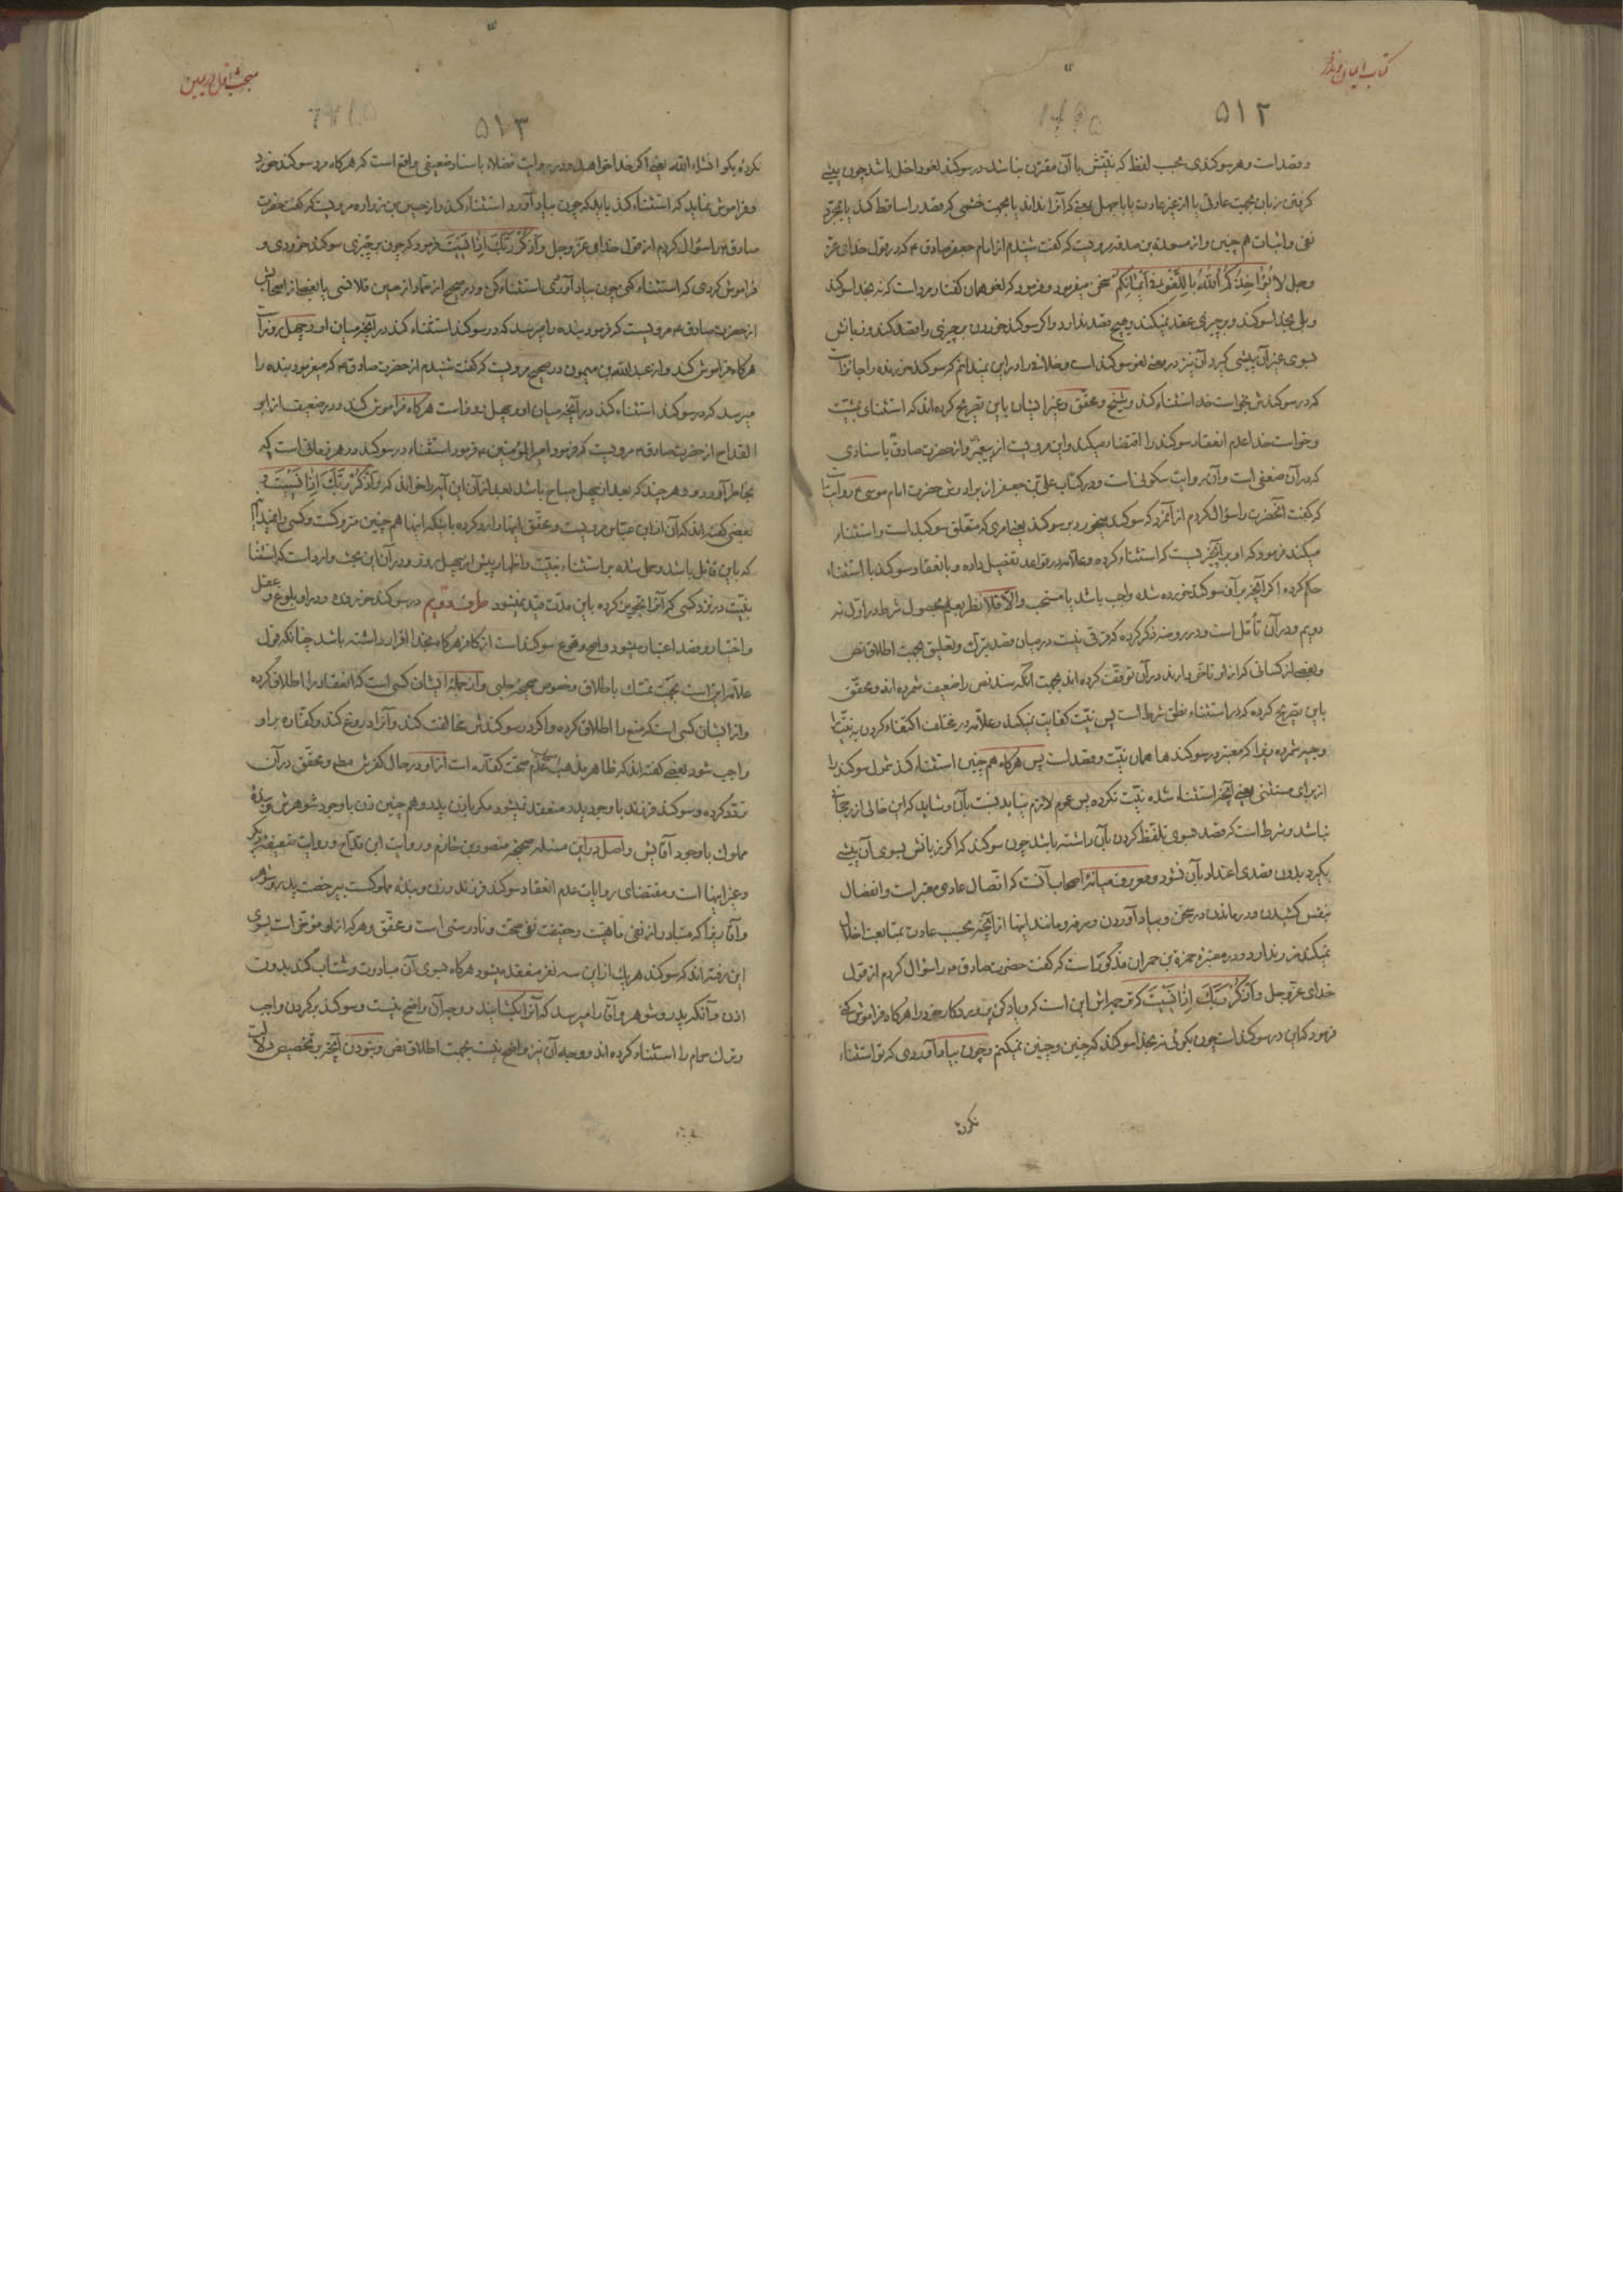 كتاب ايمان و نذور
۵۱۲
و قصد است و هر سوکندی بحسب لفظ که نیّتش با آن مقترن نباشد در سوکند لغو داخل باشد چون پیشی
کرفتن زبان بجهت عادتی یا از غیر عادت یا با جهل بمعنی که آنرا نداند یا بجهت خشمی که قصد را ساقط کند یا بمجرّد
نفی و اثبات هم چنین و از مسعدة بن صدقه مرویست که کفت شنیدم از امام جعفر صادق ع که در قول خدای عزّ
و جل لا یُؤاخِذُکُمُ اللّهُ بِاللَّغْوِ فی اَیْمانِکُم سخن میفرمود و فرمود که لغو همان کفتار مرد است که نه بخدا سوکند
و بلی بخدا سوکند و بر چیزی عقد نمیکند و هیچ قصد ندارد و اکر سوکند خوردن بر چیزی را قصد کند و زبانش
بسوی غیر آن پیشی کیرد آن نیز در معنی لغو سوکند است و خلافی را در این نمیدانم که سوکند خورنده را جائز است
که در سوکندش بخواست خدا استثناء کند و شیخ و محقّق و غیر ایشان باین تصریح کرده اند که استثنای بمشیّت
و خواست خدا عدم انعقاد سوکند را اقتضاء میکند و این مرویست از پیغمبر و از حضرت صادق باسنادی
که در آن ضعفی است و آن روایت سکونی است و در کتاب علی بن جعفر از برادرش حضرت امام موسی ع روایت است
که کفت آنحضرت را سؤال کردم از آنمرد که سوکند میخورد بر سوکند یعنی امری که متعلّق سوکند است و استثناء
میکند فرمود که او بر آنچیز یست که استثناء کرده و علامه در قواعد تفصیل داده و بانعقاد سوکند با استثناء
حکم کرده اکر آنچه بر آن سوکند خورده شده واجب باشد یا مستحب والّا فلا نظر بعلم بحصول شرط در اول نه
دویم و در آن تأمّل است و در روضه ذکر کرده که فرقی نیست در میان قصد تبرّک و تعلیق بجهت اطلاق نصّ
و بعضی از کسانی که از او تاخّر دارند در آن توقّف کرده اند بجهت آنکه سند نص را ضعیف شمرده اند و محقّق
باین تصریح کرده که در استثناء نطق شرط است پس نیّت کفایت نمیکند و علامه در مختلف اکتفاء کردن به نیّت را
وجیه شمرده زیرا که معتبر در سوکند ها همان نیّت و قصد است پس هرکاه هم چنین استثناء کند شمول سوکند را
از برای مستثنی یعنی آنچه استثناء شده نیّت نکرده پس عموم لازم نیاید نسبت بآن و شاید که این خالی از رجحانی
نباشد و شرط است که قصد بسوی تلفّظ کردن بآن داشته باشد چون سوکند که اکر زبانش بسوی آن پیشی
بکیرد بدون قصدی اعتداد بآن نشود و معروف میانهٔ اصحاب آنست که اتّصال عادی معتبر است و انفصال
بنفس کشیدن و در ماندن در سخن و بیاد آوردن و سرفه و مانند اینها از آنچه بحسب عادت بمتابعت اخلال
نمیکند ضرر ندارد و در معتبرهٔ حمزة بن حمران مذکور است که کفت حضرت صادق ع را سؤال کردم از قول
خدای عزّ و جل وَاذْکُرْ رَبَّکَ اِذا نَسیتَ که ترجمه اش این است که و یاد کن پروردکار خود را هرکاه فراموش کنی
فرمود که این در سوکند است چون بکوئی نه بخدا سوکند که چنین و چنین نمیکنم و چون بیاد آوردی که تو استثناء
نکردهٔ
مبحث اول در یمین
۵۱۳
نکردهٔ بکو انشاء الله یعنی اکر خدا خواهد و در روایت فضلاء باسناد ضعیفی واقع است که هرکاه مرد سوکند خورد
و فراموش نماید که استثناء کند باید که چون بیاد آورد استثناء کند و از حسین بن زراره مرویست که کفت حضرت
صادق ع را سؤال کردم از قول خدای عزّ و جل وَاذْکُرْ رَبَّکَ اِذا نَسیتَ فرمود که چون بر چیزی سوکند خوردی و
فراموش کردی که استثناء کنی چون بیاد آوردی استثناء کن و در صحیح از حماد از حسین قلانسی یا بعضی از اصحابش
از حضرت صادق ع مرویست که فرمود بنده را میرسد که در سوکند استثناء کند در آنچه میان او و چهل روز است
هرکاه فراموش کند و از عبد الله بن میمون در صحیح مرویست که کفت شنیدم از حضرت صادق ع که میفرمود بنده را
میرسد که در سوکند استثناء کند در آنچه میان او و چهل روز است هرکاه فراموش کند و در ضعیف از ابو
القداح از حضرت صادق ع مرویست که فرمود امیر المؤمنین ع فرمود استثناء در سوکند در هر زمانی است که
بخاطر آورد و هر چند که بعد از چهل صباح باشد بعد از آن این آیه را خواند که وَاذْکُرْ رَبَّکَ اِذا نَسیتَ و
بعضی کفته اند که آن از ابن عبّاس مرویست و محقّق اینها وارد کرده با اینکه اینها هم چنین متروکست و کسی را نمیدانم
که باین قائل باشد و حمل شده بر استثناء بنیّت و اظهار پیش از چهل روز و در آن این بحث وارد است که استثنا
بنیّت در نزد کسی که آنرا تجویز کرده باین مدّت مقیّد نمیشود طرف دویم در سوکند خورنده و در او بلوغ و عقل
و اختیار و قصد اعتبار میشود و اصح وقوع سوکند است از کافر هرکاه بخدا اقرار داشته باشد چنانکه قول
علامه این است بجهت تمسّک باطلاق و خصوص صحیحهٔ حلبی و از جملهٔ ایشان کسی است که انعقاد را اطلاق کرده
و از ایشان کسی است که منع را اطلاق کرده و اکر در سوکندش مخالفت کند و آنرا دروغ کند و کفّاره بر او
واجب شود بعضی کفته اند که ظاهر مذهب اصحاب عدم صحّت کفّاره است از او در حال کفرش مطلقا و محقّق در آن
تردّد کرده و سوکند فرزند با وجود پدر منعقد نمیشود مکر باذن پدر و هم چنین زن با وجود شوهرش و بندهٔ
مملوک با وجود آقایش و اصل در این مسئله صحیحهٔ منصور بن حازم و روایت ابن قداح و روایت ضعیفهٔ دیکر
و غیر اینها است و مقتضای روایات عدم انعقاد سوکند فرزند و زن و بندهٔ مملوکست بی رخصت پدر و شوهر
و آقا زیرا که متبادر از نفی ماهیّت و حقیقت نفی صحّت و نادرستی است و محقّق و هر که از او مؤخّر است بسوی
این رفته اند که سوکند هر یک از این سه نفر منعقد میشود هرکاه بسوی آن مبادرت و شتاب کند بدون
اذن و آنکه پدر و شوهر و آقا را میرسد که آنرا بکشایند و وجه آن واضح نیست و سوکند بر کردن واجب
و ترک حرام را استثناء کرده اند و وجه آن نیز واضح نیست بجهت اطلاق نص و نبودن آنچه بر تخصیص دلالت